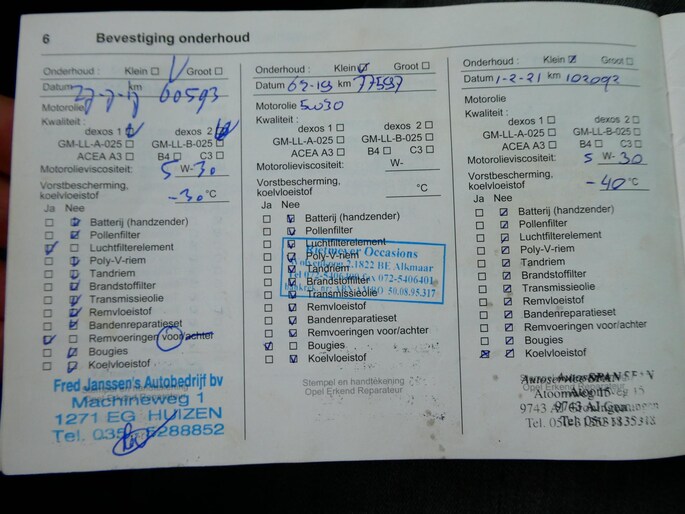 6 Bevestiging onderhoud
Onderhoud : Klein Groot
Datum 27-7-17 km 60593
Motorolie
Kwaliteit :
dexos 1 dexos 2
GM-LL-A-025 GM-LL-B-025
ACEA A3 B4 C3
Motorolieviscositeit: 5 W- 30
Vorstbescherming,
koelvloeistof -30 °C
Ja Nee
Batterij (handzender)
Pollenfilter
Luchtfilterelement
Poly-V-riem
Tandriem
Brandstoffilter
Transmissieolie
Remvloeistof
Bandenreparatieset
Remvoeringen voor/achter
Bougies
Koelvloeistof
Fred Janssen's Autobedrijf bv
Machineweg 1
1271 EG HUIZEN
Tel. 035 5288852
Onderhoud : Klein Groot
Datum km 77597
Motorolie 5W30
Kwaliteit :
dexos 1 dexos 2
GM-LL-A-025 GM-LL-B-025
ACEA A3 B4 C3
Motorolieviscositeit: W-
Vorstbescherming,
koelvloeistof °C
Ja Nee
Batterij (handzender)
Pollenfilter
Luchtfilterelement
Poly-V-riem
Tandriem
Brandstoffilter
Transmissieolie
Remvloeistof
Bandenreparatieset
Remvoeringen voor/achter
Bougies
Koelvloeistof
Rietmeyer Occasions
1822 BE Alkmaar
072-5406401
50.08.95.317
Stempel en handtekening
Opel Erkend Reparateur
Onderhoud : Klein Groot
Datum 1-2-21 km 102092
Motorolie
Kwaliteit :
dexos 1 dexos 2
GM-LL-A-025 GM-LL-B-025
ACEA A3 B4 C3
Motorolieviscositeit: 5 W- 30
Vorstbescherming,
koelvloeistof -40 °C
Ja Nee
Batterij (handzender)
Pollenfilter
Luchtfilterelement
Poly-V-riem
Tandriem
Brandstoffilter
Transmissieolie
Remvloeistof
Bandenreparatieset
Remvoeringen voor/achter
Bougies
Koelvloeistof
Autoservice SPAN
Opel Erkend Reparateur
Atoomweg 15
9743 AJ Groningen
Tel.